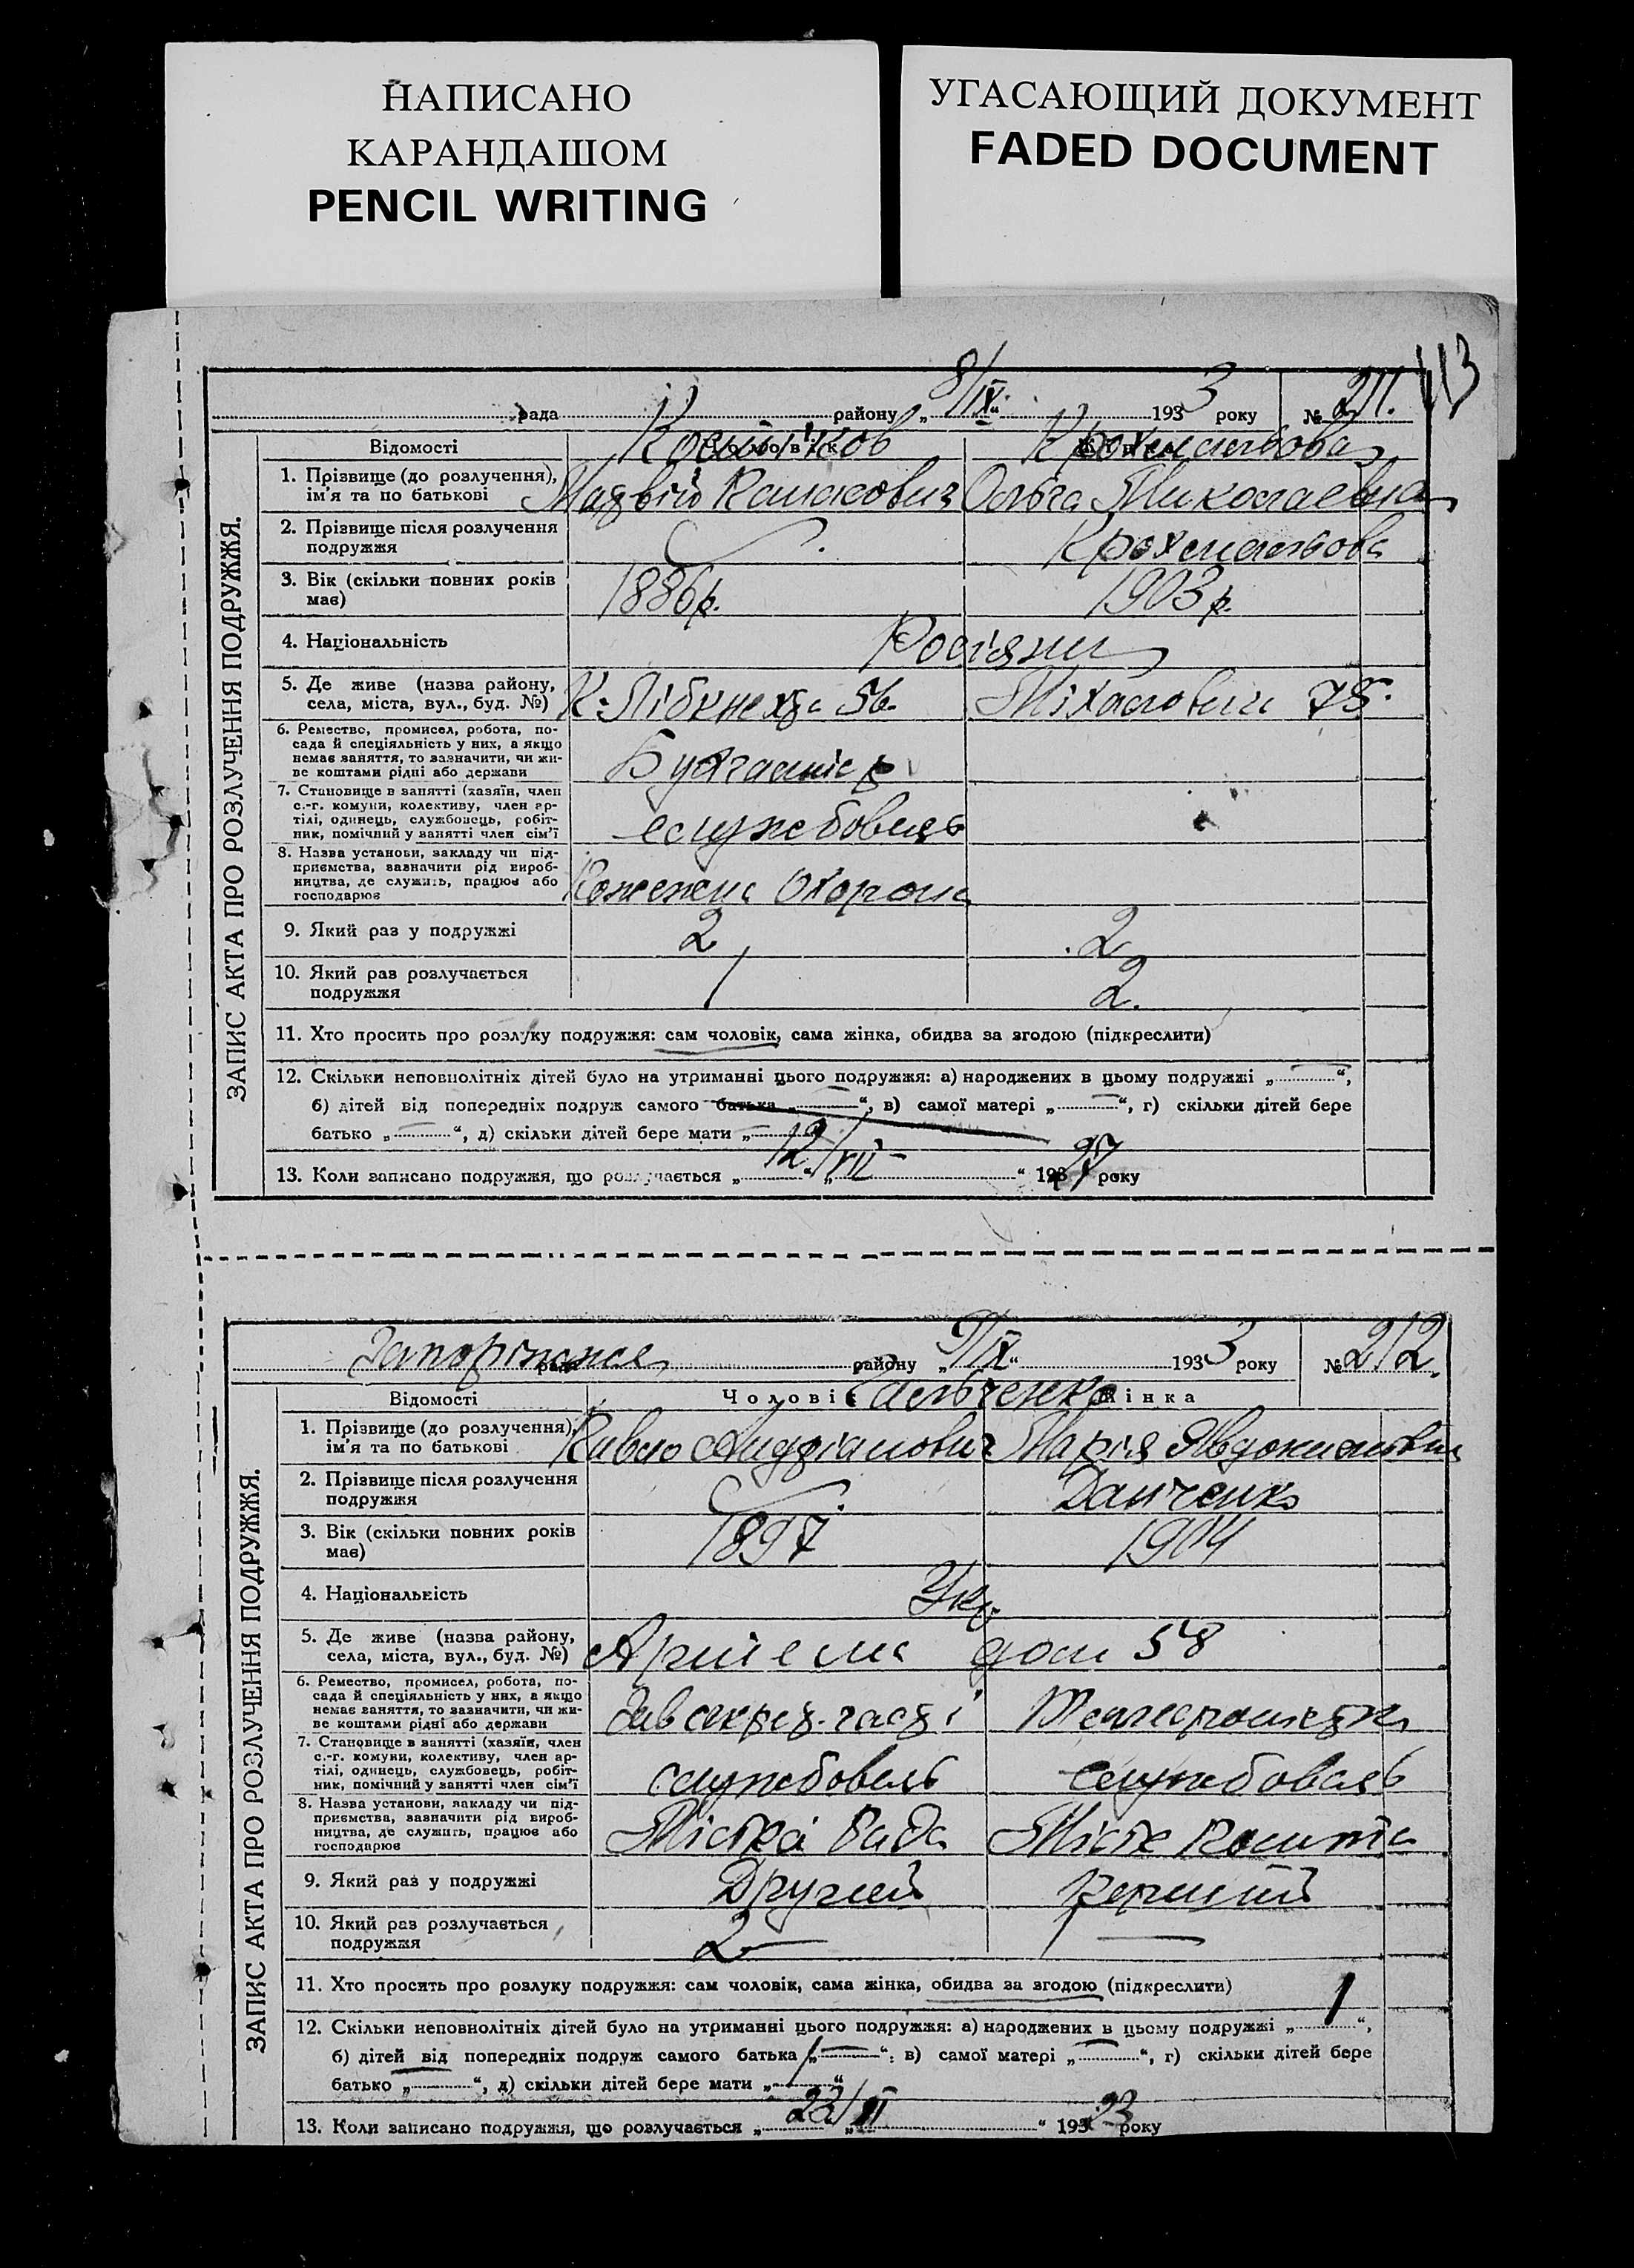 НАПИСАНО
КАРАНДАШОМ
PENCIL WRITING
УГАСАЮЩИЙ ДОКУМЕНТ
FADED DOCUMENT
113
рада району „ 8/IX “ 1933 року № 211.
ЗАПИС АКТА ПРО РОЗЛУЧЕННЯ ПОДРУЖЖЯ.
Відомості
1. Прізвище (до розлучення), Крохмальова
ім'я та по батькові Ольга Миколаевна
2. Прізвище після розлучення
подружжя Крохмальова
3. Вік (скільки повних років 1886 р. 1903 р.
має)
4. Національність Росіяни
5. Де живе (назва району, К. Лібкнехта 56.
села, міста, вул., буд. №) 75.
6. Ремество, промисел, робота, по-
сада й спеціяльність у них, а якщо
немає заняття, то зазначити, чи жи-
ве коштами рідні або держави Бухгалтер
7. Становище в занятті (хазяїн, член
с.-г. комуни, колективу, член ар-
тілі, одинець, службовець, робіт-
ник, помічний у занятті член сім'ї службовець
8. Назва установи, закладу чи під-
приємства, зазначити рід вироб-
ництва, де служить, працює або
господарює Пожежна Охорона
9. Який раз у подружжі 2 2
10. Який раз розлучається
подружжя 1 2.
11. Хто просить про розлуку подружжя: сам чоловік, сама жінка, обидва за згодою (підкреслити)
12. Скільки неповнолітніх дітей було на утриманні цього подружжя: а) народжених в цьому подружжі „ — “,
б) дітей від попередніх подруж самого батька „ — “, в) самої матері „ — “, г) скільки дітей бере
батько „ — “, д) скільки дітей бере мати „ “
13. Коли записано подружжя, що розлучається „ 12/VII “ 1927 року
Запоріжжя
рада району „ 9/IX “ 1933 року № 212
ЗАПИС АКТА ПРО РОЗЛУЧЕННЯ ПОДРУЖЖЯ.
Відомості Чоловік Жінка
1. Прізвище (до розлучення),
ім'я та по батькові Марія
2. Прізвище після розлучення
подружжя Данченко
3. Вік (скільки повних років 1897 1904
має)
4. Національність Укр.
5. Де живе (назва району,
села, міста, вул., буд. №) Артема дом 58
6. Ремество, промисел, робота, по-
сада й спеціяльність у них, а якщо
немає заняття, то зазначити, чи жи-
ве коштами рідні або держави
7. Становище в занятті (хазяїн, член
с.-г. комуни, колективу, член ар-
тілі, одинець, службовець, робіт-
ник, помічний у занятті член сім'ї службовець службовець
8. Назва установи, закладу чи під-
приємства, зазначити рід вироб-
ництва, де служить, працює або
господарює Міська Рада
9. Який раз у подружжі Другий Перший
10. Який раз розлучається
подружжя 2 —
11. Хто просить про розлуку подружжя: сам чоловік, сама жінка, обидва за згодою (підкреслити)
12. Скільки неповнолітніх дітей було на утриманні цього подружжя: а) народжених в цьому подружжі „ 1 “,
б) дітей від попередніх подруж самого батька „ — “, в) самої матері „ — “, г) скільки дітей бере
батько „ — “, д) скільки дітей бере мати „ 1 “
13. Коли записано подружжя, що розлучається „ 1923 року